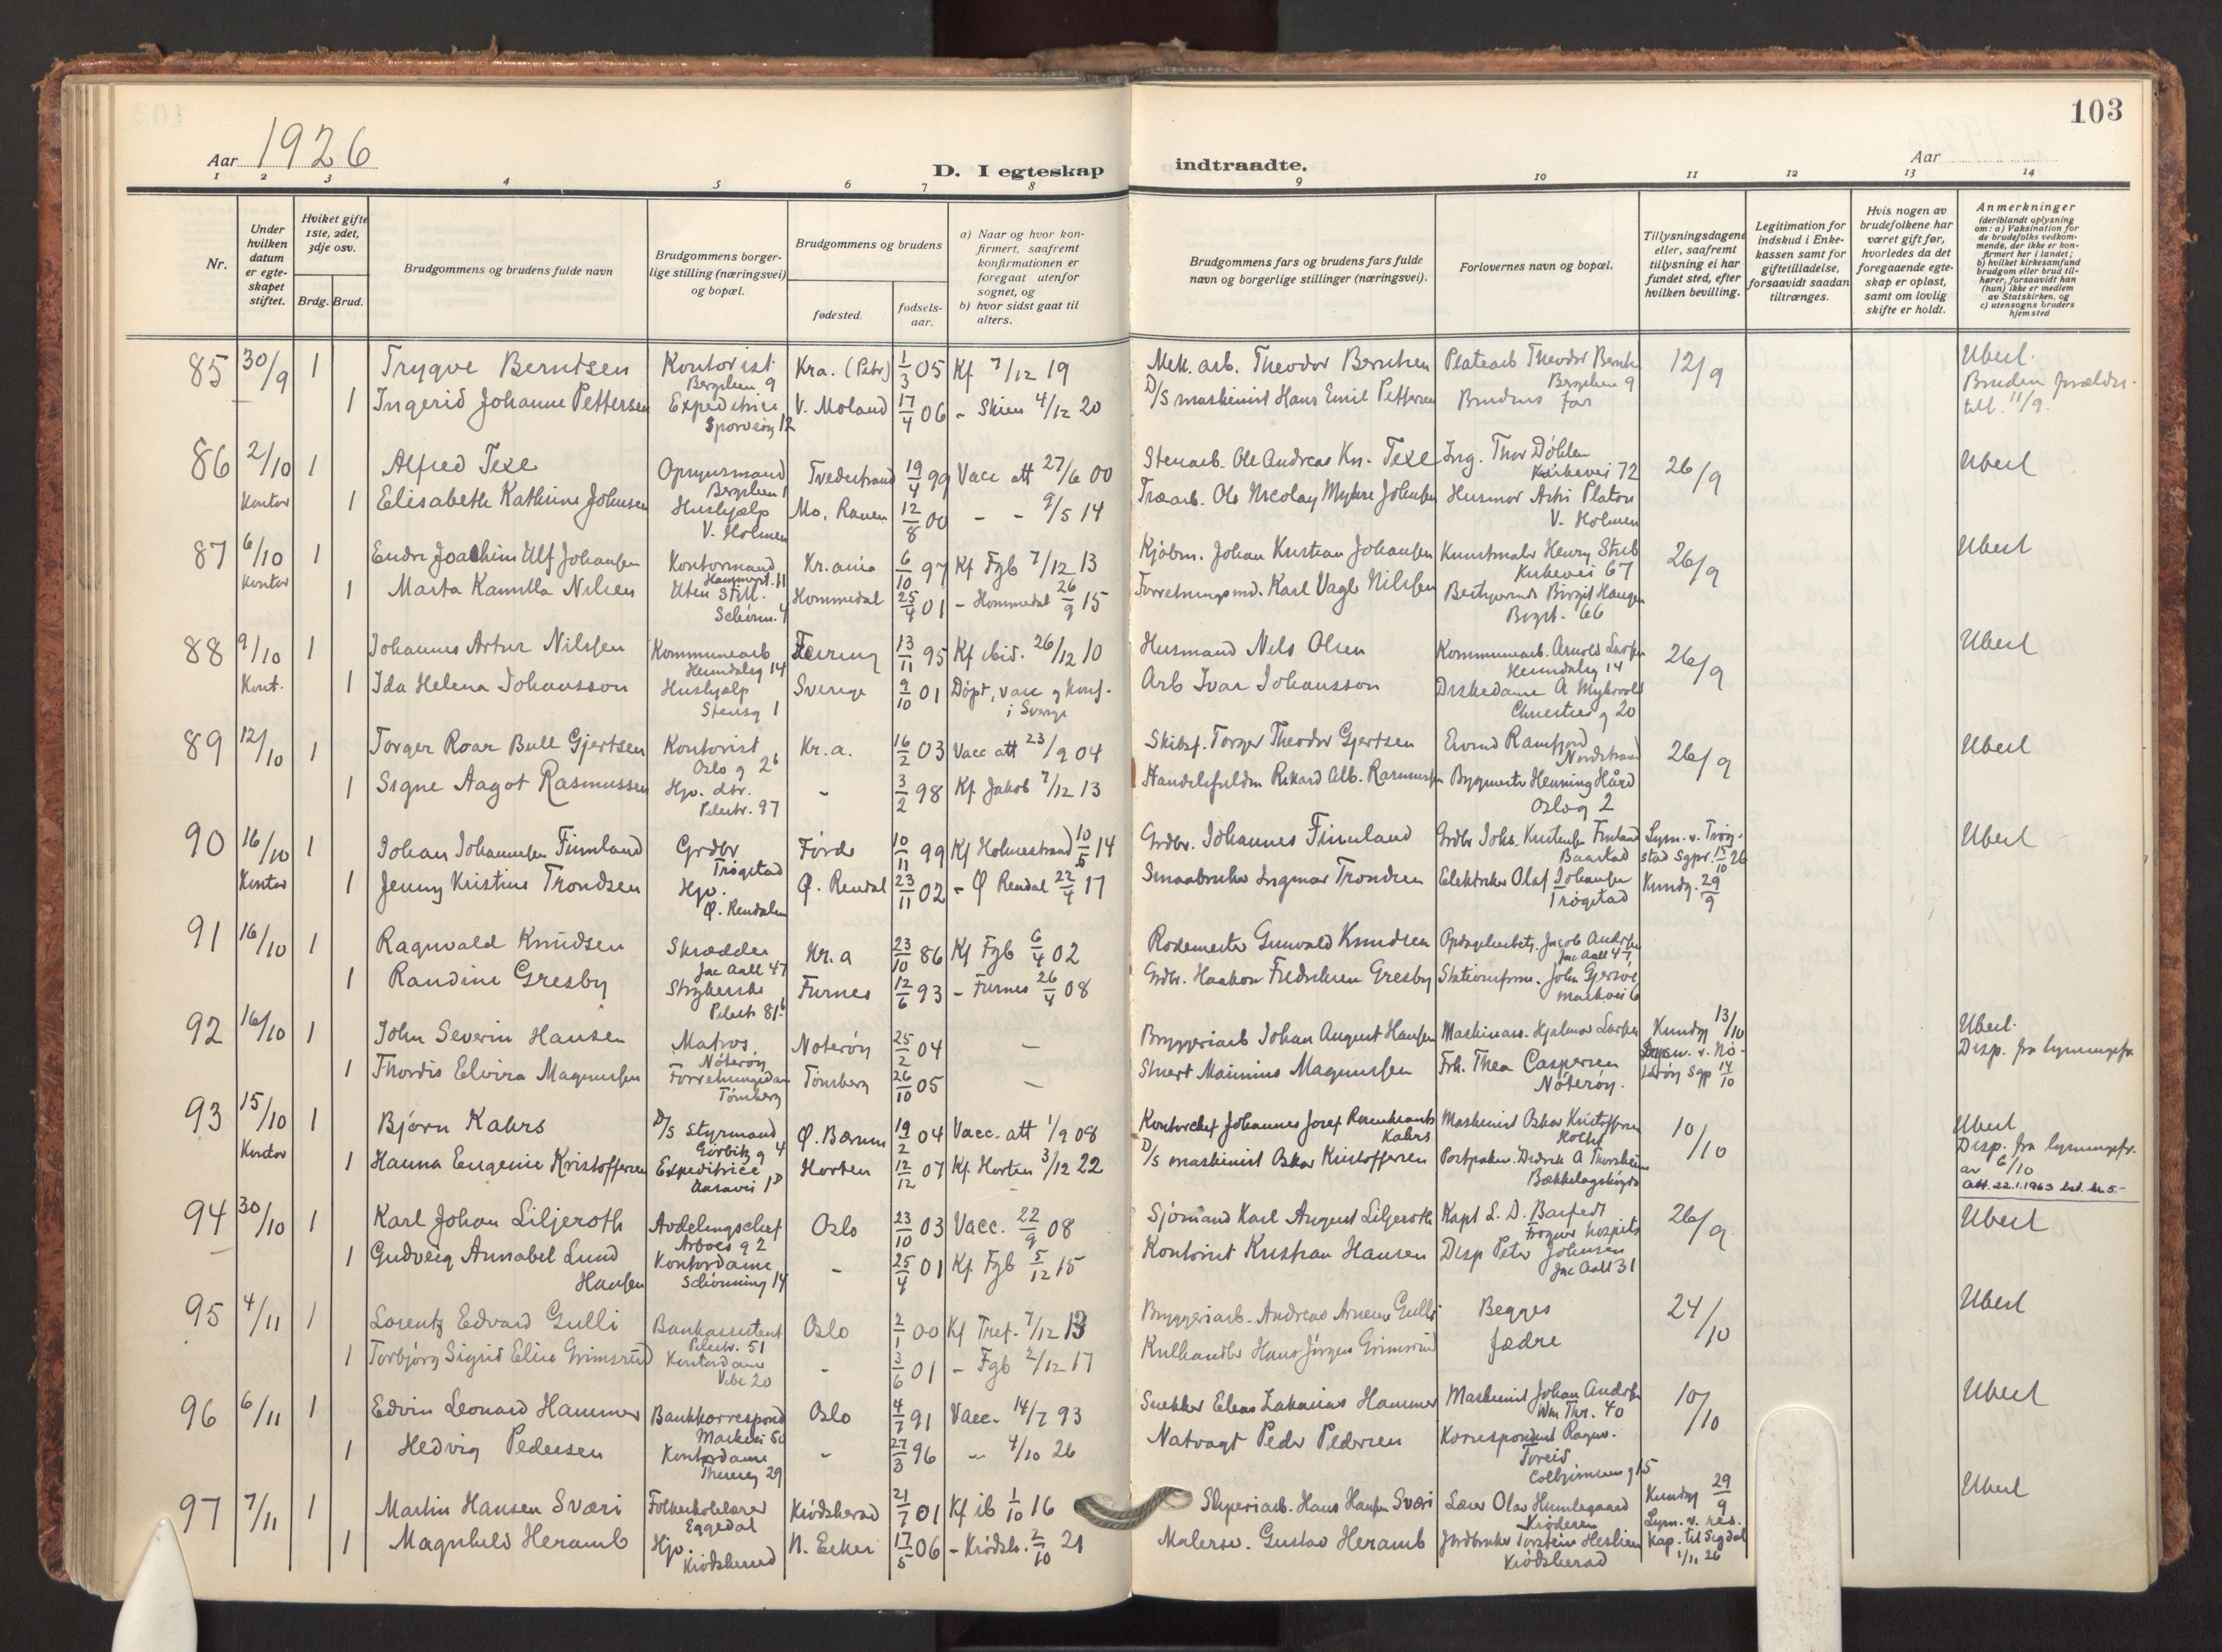 103
Aar 1926
D. I egteskap indtraadte.
Aar
1 2 3 4 5 6 7 8 9 10 11 12 13 14
Nr.
Under hvilken datum er egteskapet stiftet.
Hviket gifte 1ste, 2det, 3dje osv.
Brdg. Brud.
Brudgommens og brudens fulde navn
Brudgommens borgerlige stilling (næringsvei) og bopæl.
Brudgommens og brudens
fødested.
fødselsaar.
a) Naar og hvor konfirmert, saafremt konfirmationen er foregaat utenfor sognet, og
b) hvor sidst gaat til alters.
Brudgommens fars og brudens fars fulde navn og borgerlige stillinger (næringsvei).
Forlovernes navn og bopæl.
Tillysningsdagene eller, saafremt tillysning ei har fundet sted, efter hvilken bevilling.
Legitimation for indskud i Enkekassen samt for giftetilladelse, forsaavidt saadan tiltrænges.
Hvis nogen av brudefolkene har været gift før, hvorledes da det foregaaende egteskap er opløst, samt om lovlig skifte er holdt.
Anmerkninger
(deriblandt oplysning om: a) Vaksination for de brudefolks vedkommende, der ikke er konfirmert her i landet; b) hvilket kirkesamfund brudgom eller brud tilhører, forsaavidt han (hun) ikke er medlem av Statskirken, og c) utensogns bruders hjemsted
85 30/9 1 Trygve Berntsen Kontorist Kra. (Petr) 1/3 05 Kf 7/12 19 Mek. arb. Theodor Berntsen Platearb Theodor Bernts 12/9 Ubert.
Bergslien 9 Bergslien 9 Bruden
1 Ingerid Johanne Pettersen Expeditrice V. Moland 17/4 06 - Skien 4/12 20 D/S maskinist Hans Emil Pettersen Brudens far till. 11/9.
Sporveisg 12
86 2/10 1 Alfred Texe Opsynsmand Tvedestrand 19/4 99 Vacc att 27/6 00 Stenarb. Ole Andreas Kn. Texe Ing. Thor Døhlen 26/9 Ubert
Bergslien 1 Kirkevei 72
Kontor 1 Elisabeth Kathrine Johnsen Hushjælp Mo, Ranen 12/8 00 - - 9/5 14 Træarb. Ole Nicolay Myhre Johnsen Husmor Asti Platou
V. Holmen V. Holmen
87 6/10 1 Endre Joachim Ulf Johansen Kontormand Kr.ania 6/10 97 Kf Fgb 7/12 13 Kjøbm. Johan Kristian Johansen Kunstmaler Henry Stub 26/9 Ubert
Hammerst. 11 Kirkevei 67
Kontor 1 Marta Kamilla Nilsen Uten Still. Hommedal 25/4 01 - Hommedal 26/9 15 Forretningsmd. Karl Vagle Nilssen Bestyrerinde Birgit Haugen
Schönn. 4 Bogst. 66
88 9/10 1 Johannes Artur Nilssen Kommunearb 13/11 95 Kf ibid. 26/12 10 Husmand Nils Olsen Kommunearb. Arnold Larsen 26/9 Ubert
Heimdalsg 14 Heimdalsg 14
Kont. 1 Ida Helena Johansson Hushjælp Sverige 9/10 01 Døpt, vacc og konf. Arb Ivar Johansson Diskedame A Mykvold
Stensg 1 i Sverge 20
89 12/10 1 Torger Roar Bull Gjertsen Kontorist Kr.a. 16/2 03 Vacc att 23/9 04 Skibsf. Torger Theodor Gjertsen Eivind Ramfjord 26/9 Ubert
Oslo g 2b Nordstrand
1 Signe Aagot Rasmussen Hjv. dtr. - 3/2 98 Kf. Jakob 7/12 13 Handelsfuldm Rikard Alb. Rasmussen Bygmester Henning Hård
Pilestr. 97 Oslog 2
90 16/10 1 Johan Johannessen Finnland Grdbr Førde 10/11 99 Kf Holmestrand 10/5 14 Grdbr. Johannes Finnland Grdbr Johs. Kristensen Finnland Lysn. v. Trøg- Ubert
Trøgstad Baastad stad sgpr. 15/10 26
Kontor 1 Jenny Kristine Trondsen Hjv. Ø. Rendal 23/11 02 - Ø Rendal 22/4 17 Smaabruker Ingmar Trondsen Elektriker Olaf Johansen Kundg. 29/9
Ø. Rendalen Trøgstad
91 16/10 1 Ragnvald Knudsen Skrædder Kr.a 23/10 86 Kf Fgb 6/4 02 Rodemester Gunvald Knudsen Opdagelsesbetj. Jacob Andersen
Jac Aall 47 Jac Aall 47
1 Randine Gresby Strykerske Furnes 12/6 93 - Furnes 26/4 08 Grdbr. Haakon Fredriksen Gresby Stationsform. John Gjersøe
Pilestr 81b Markvei 6
92 16/10 1 John Severin Hansen Matros Nøterøy 25/2 04 - Bryggeriarb Johan August Hansen Maskinass. Hjalmar Larsen Kundg 13/10 Ubert.
Nøterøy Lysn. v. Nø- Disp. fra lysningsfr.
1 Thordis Elvira Magnussen Forretningsdam Tønsberg 26/10 05 - Stuert Mainius Magnussen Frk. Thea Caspersen terøy Sgp 14/10
Tønsberg Nøterøy.
93 15/10 1 Bjørn Kahrs D/S Styrmand Ø. Bærum 19/2 04 Vacc. att 1/9 08 Kontorchef Johannes Josef Rosenkrantz Kahrs Maskinist Oskar Kristoffersen 10/10 Ubert
Gørbitz g 4 Disp. fra lysningsfr.
Kontor 1 Hanna Eugenie Kristoffersen Expeditrice Horten 12/12 07 Kf. Horten 3/12 22 D/S maskinist Oskar Kristoffersen Didrik A Thorsheim av 6/10
Bækkelagshøgda Att. 22.1.1963 bet. kr. 5.-
94 30/10 1 Karl Johan Liljeroth Avdelingschef Oslo 23/10 03 Vacc. 22/9 08 Sjømand Karl August Liljeroth Kapt L. D. Barfedt 26/9 Ubert
Arboes g 2 Frogner hospits
1 Gudveig Annabel Lund Hansen Kontordame - 25/4 01 Kf. Fgb 5/12 15 Kontorist Kristian Hansen Disp Peter Johnsen
Schönning 14 Jac Aall 31
95 4/11 1 Lorentz Edvard Gulli Bankassistent Oslo 2/1 00 Kf Tref. 7/12 13 Bryggeriarb. Andreas Arnesen Gulli Begges 24/10 Ubert
Pilestr. 51
1 Torbjørg Sigrid Elise Grimsrud Kontordame - 3/6 01 - Fgb 2/12 17 Kulhandler Hans Jörgen Grimsrud fædre
Vibe 20
96 6/11 1 Edvin Leonard Hammer Bankkorrespond Oslo 4/7 91 Vacc. 14/7 93 Snekker Elias Zakarias Hammer Maskinist Johan Andersen 10/10 Ubert
Markvei 50 Wm Thr. 40
1 Hedvig Pedersen Kontordame - 27/3 96 - 4/10 26 Natvagt Peder Pedersen Korrespondent Ragnv. Toreid
Theresesg 29 Colbjørnsens g 15
97 7/11 1 Martin Hansen Sværi Folkeskolelærer Krödsherad 21/7 01 Kf ib 1/10 16 Sliperiarb. Hans Hansen Sværi Lærer Olav Humlegaard Kundg 29/9 Ubert
Eggedal Krøderen Lysn. v. res.
1 Magnhild Heramb Hjv. N. Eeker 17/5 06 - Krödsh. 2/10 21 Malersv. Gustav Heramb Jordbruker Torstein Heslien Kap. til Sigdal
Krödsherad Krödsherad 1/11 26